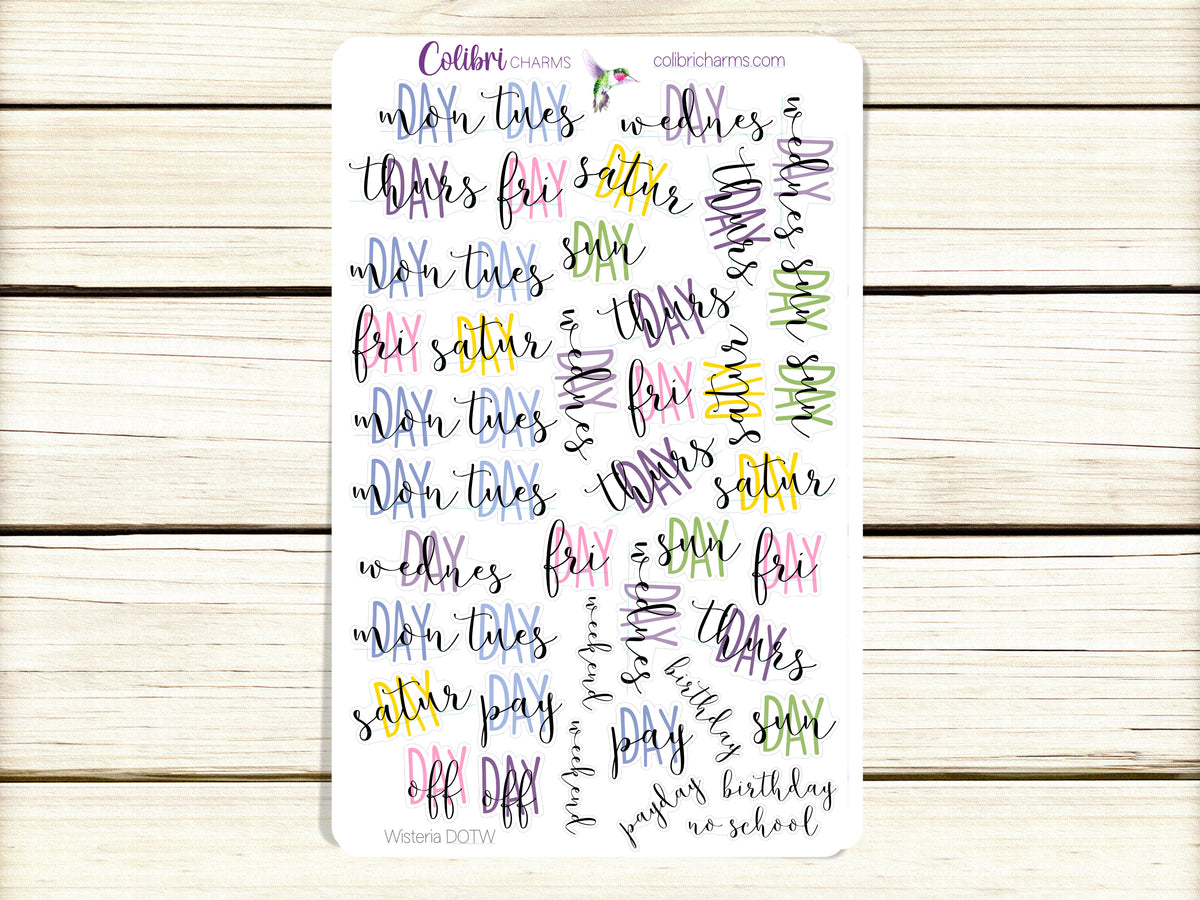 Colibri CHARMS colibricharms.com
mon DAY tues DAY wednes DAY
wednes DAY
thurs DAY fri DAY satur DAY
thurs DAY
sun DAY
mon DAY tues DAY
sun DAY
thurs DAY
fri DAY satur DAY
wednes DAY
fri DAY
satur DAY
sun DAY
mon DAY tues DAY
thurs DAY
mon DAY tues DAY
satur DAY
wednes DAY
fri DAY
sun DAY
fri DAY
wednes DAY
mon DAY tues DAY
weekend
thurs DAY
satur DAY pay DAY
birthday
pay DAY
sun DAY
weekend
off DAY off DAY
payday
birthday
no school
Wisteria DOTW